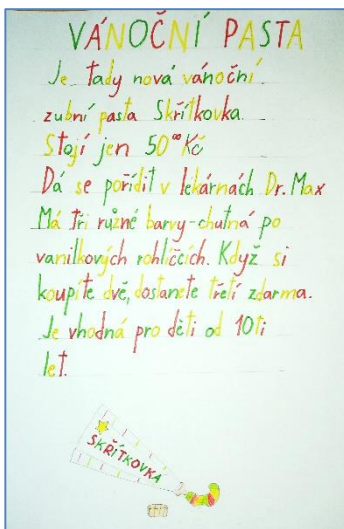 VÁNOČNÍ PASTA
Je tady nová vánoční
zubní pasta Skřítkovka.
Stojí jen 50°° Kč
Dá se pořídit v lékárnách Dr. Max
Má tři různé barvy-chutná po
vanilkových rohlíčcích. Když si
koupíte dvě, dostanete třetí zdarma.
Je vhodná pro děti od 10ti
let.
SKŘÍTKOVKA